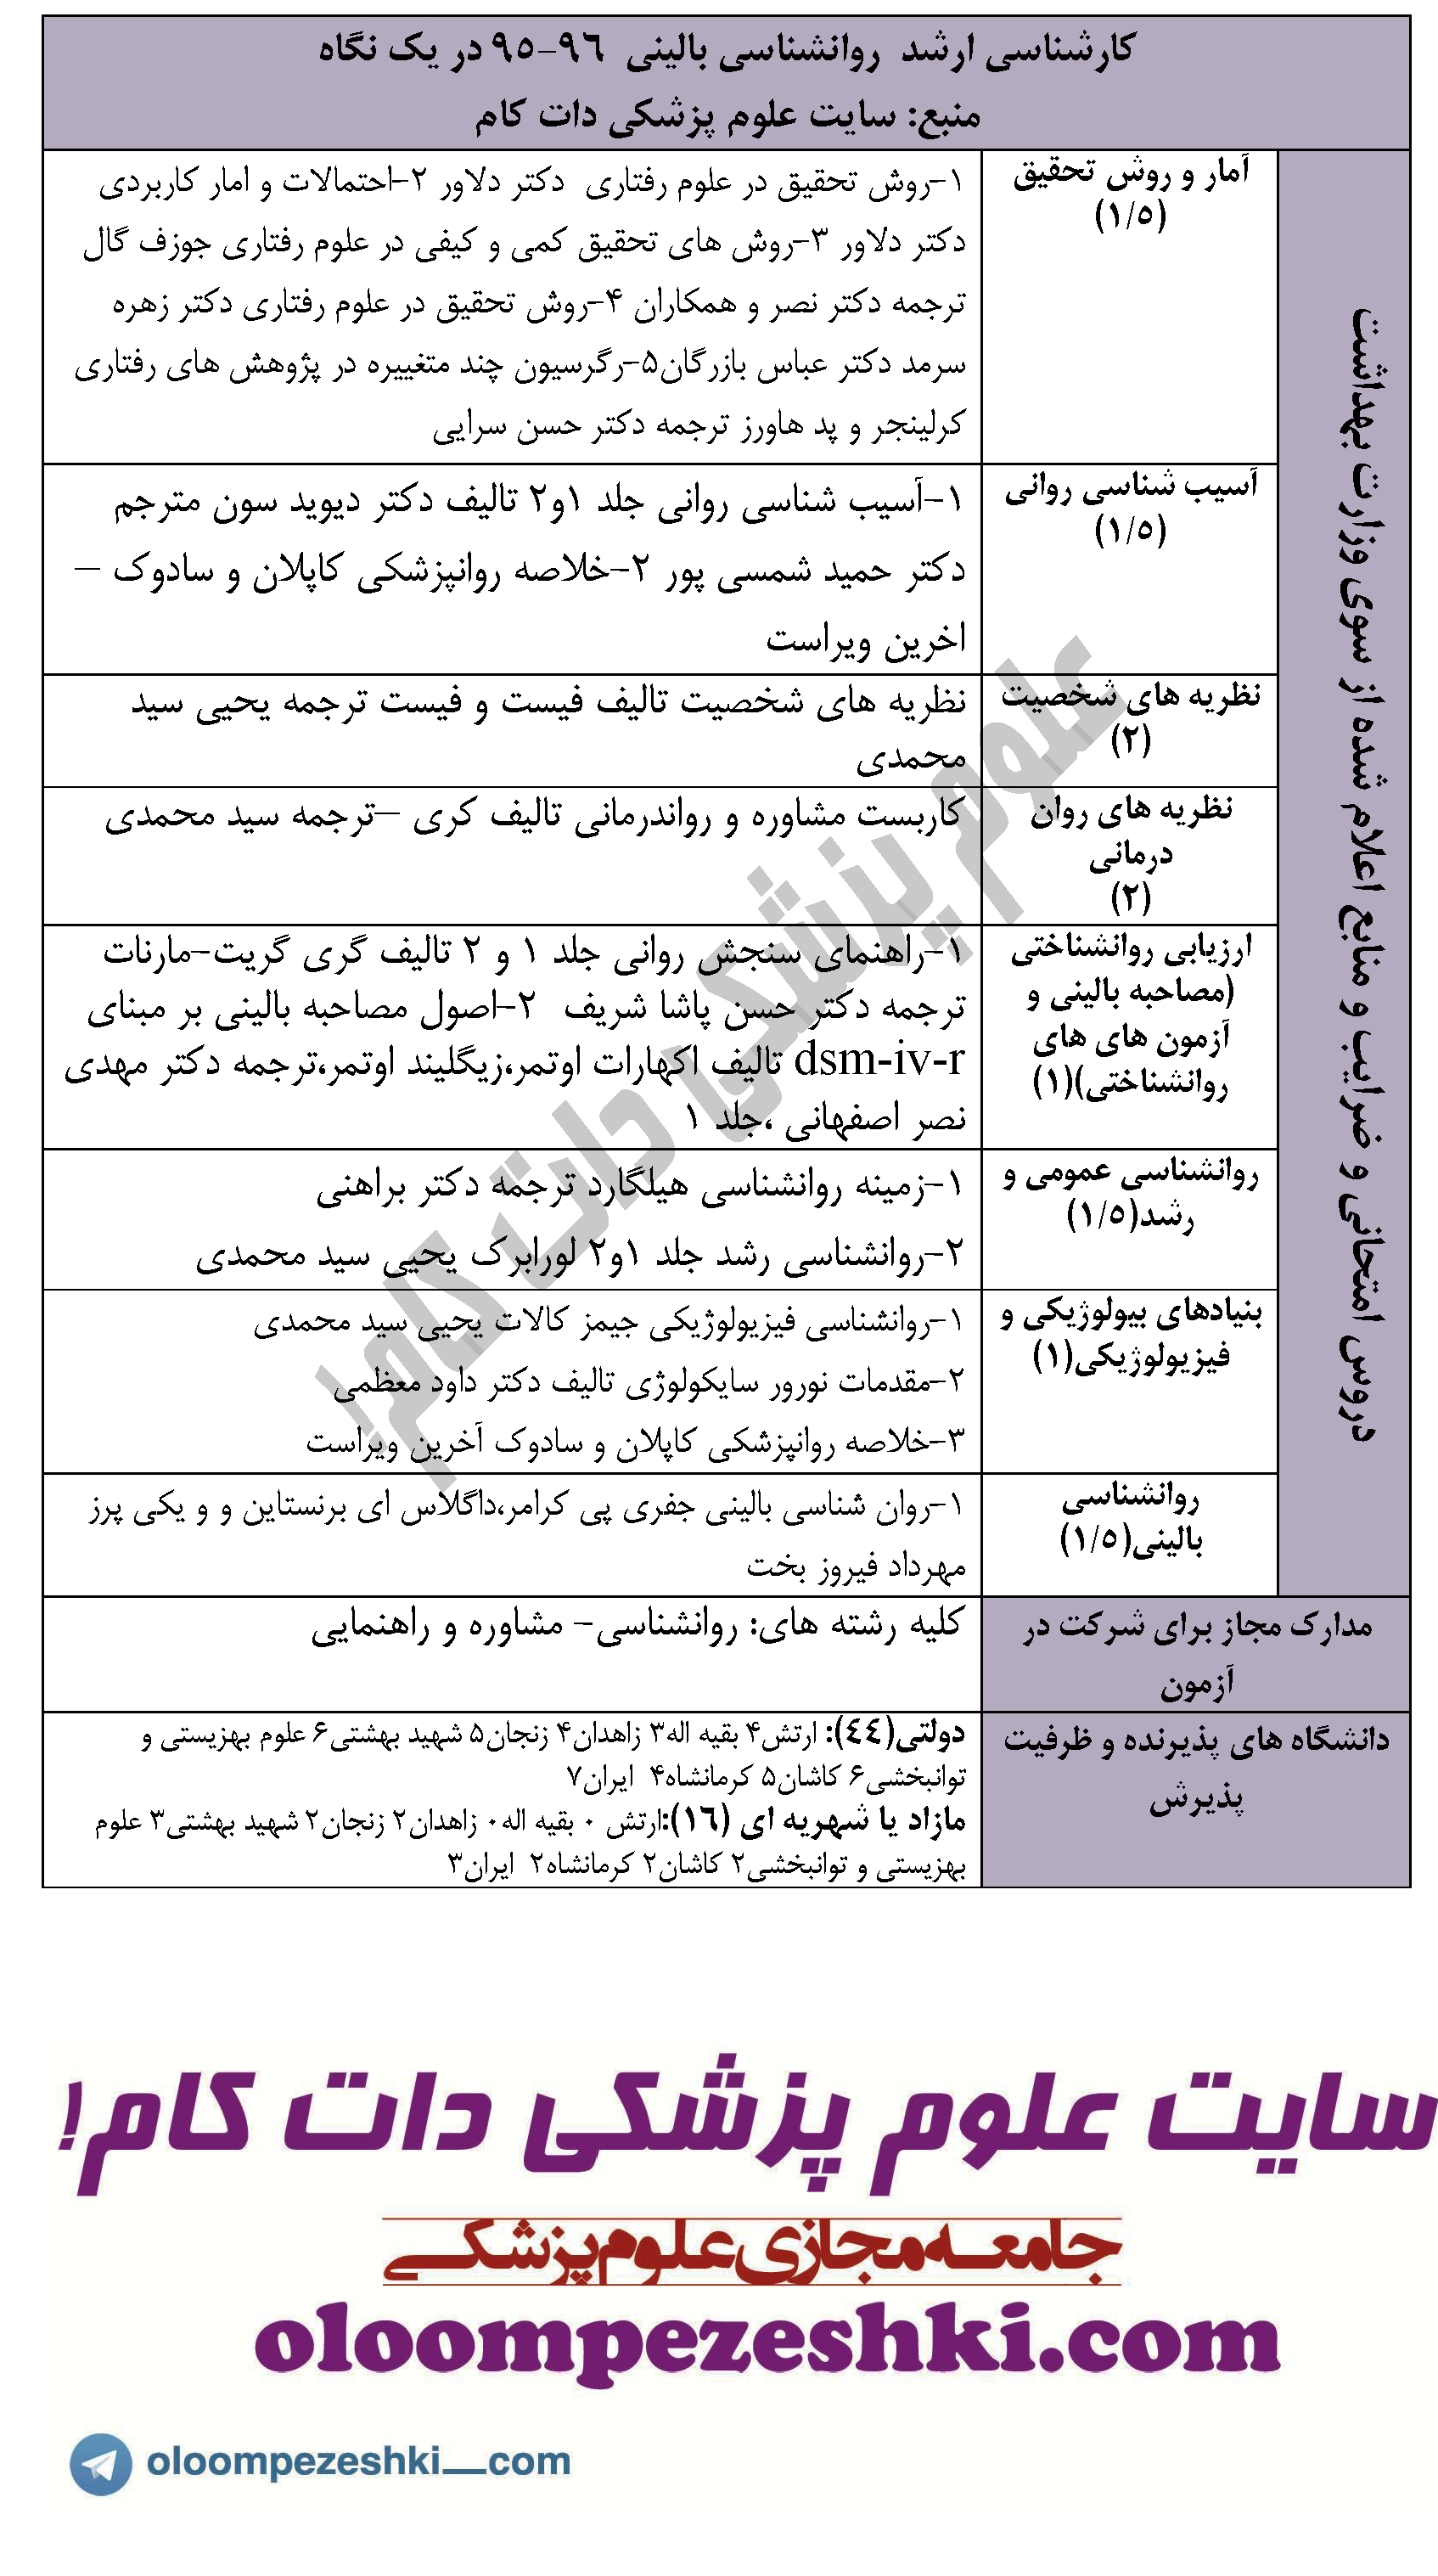 کارشناسی ارشد روانشناسی بالینی ۹۶-۹۵ در یک نگاه
منبع: سایت علوم پزشکی دات کام
دروس امتحانی و ضرایب و منابع اعلام شده از سوی وزارت بهداشت
آمار و روش تحقیق
(۱/۵)
۱-روش تحقیق در علوم رفتاری دکتر دلاور ۲-احتمالات و امار کاربردی
دکتر دلاور ۳-روش های تحقیق کمی و کیفی در علوم رفتاری جوزف گال
ترجمه دکتر نصر و همکاران ۴-روش تحقیق در علوم رفتاری دکتر زهره
سرمد دکتر عباس بازرگان۵-رگرسیون چند متغییره در پژوهش های رفتاری
کرلینجر و پد هاورز ترجمه دکتر حسن سرایی
آسیب شناسی روانی
(۱/۵)
۱-آسیب شناسی روانی جلد ۱و۲ تالیف دکتر دیوید سون مترجم
دکتر حمید شمسی پور ۲-خلاصه روانپزشکی کاپلان و سادوک –
اخرین ویراست
نظریه های شخصیت
(۲)
نظریه های شخصیت تالیف فیست و فیست ترجمه یحیی سید
محمدی
نظریه های روان
درمانی
(۲)
کاربست مشاوره و رواندرمانی تالیف کری –ترجمه سید محمدی
ارزیابی روانشناختی
(مصاحبه بالینی و
آزمون های های
روانشناختی)(۱)
۱-راهنمای سنجش روانی جلد ۱ و ۲ تالیف گری گریت-مارنات
ترجمه دکتر حسن پاشا شریف ۲-اصول مصاحبه بالینی بر مبنای
dsm-iv-r تالیف اکهارات اوتمر،زیگلیند اوتمر،ترجمه دکتر مهدی
نصر اصفهانی ،جلد ۱
روانشناسی عمومی و
رشد(۱/۵)
۱-زمینه روانشناسی هیلگارد ترجمه دکتر براهنی
۲-روانشناسی رشد جلد ۱و۲ لورابرک یحیی سید محمدی
بنیادهای بیولوژیکی و
فیزیولوژیکی(۱)
۱-روانشناسی فیزیولوژیکی جیمز کالات یحیی سید محمدی
۲-مقدمات نورور سایکولوژی تالیف دکتر داود معظمی
۳-خلاصه روانپزشکی کاپلان و سادوک آخرین ویراست
روانشناسی
بالینی(۱/۵)
۱-روان شناسی بالینی جفری پی کرامر،داگلاس ای برنستاین و و یکی پرز
مهرداد فیروز بخت
مدارک مجاز برای شرکت در
آزمون
کلیه رشته های: روانشناسی- مشاوره و راهنمایی
دانشگاه های پذیرنده و ظرفیت
پذیرش
دولتی(٤٤): ارتش۴ بقیه اله۳ زاهدان۴ زنجان۵ شهید بهشتی۶ علوم بهزیستی و
توانبخشی۶ کاشان۵ کرمانشاه۴ ایران۷
مازاد یا شهریه ای (١٦):ارتش ۰ بقیه اله۰ زاهدان۲ زنجان۲ شهید بهشتی۳ علوم
بهزیستی و توانبخشی۲ کاشان۲ کرمانشاه۲ ایران۳
علوم پزشکی دات کام!
سایت علوم پزشکی دات کام!
جامعه مجازی علوم پزشکی
oloompezeshki.com
oloompezeshki__com